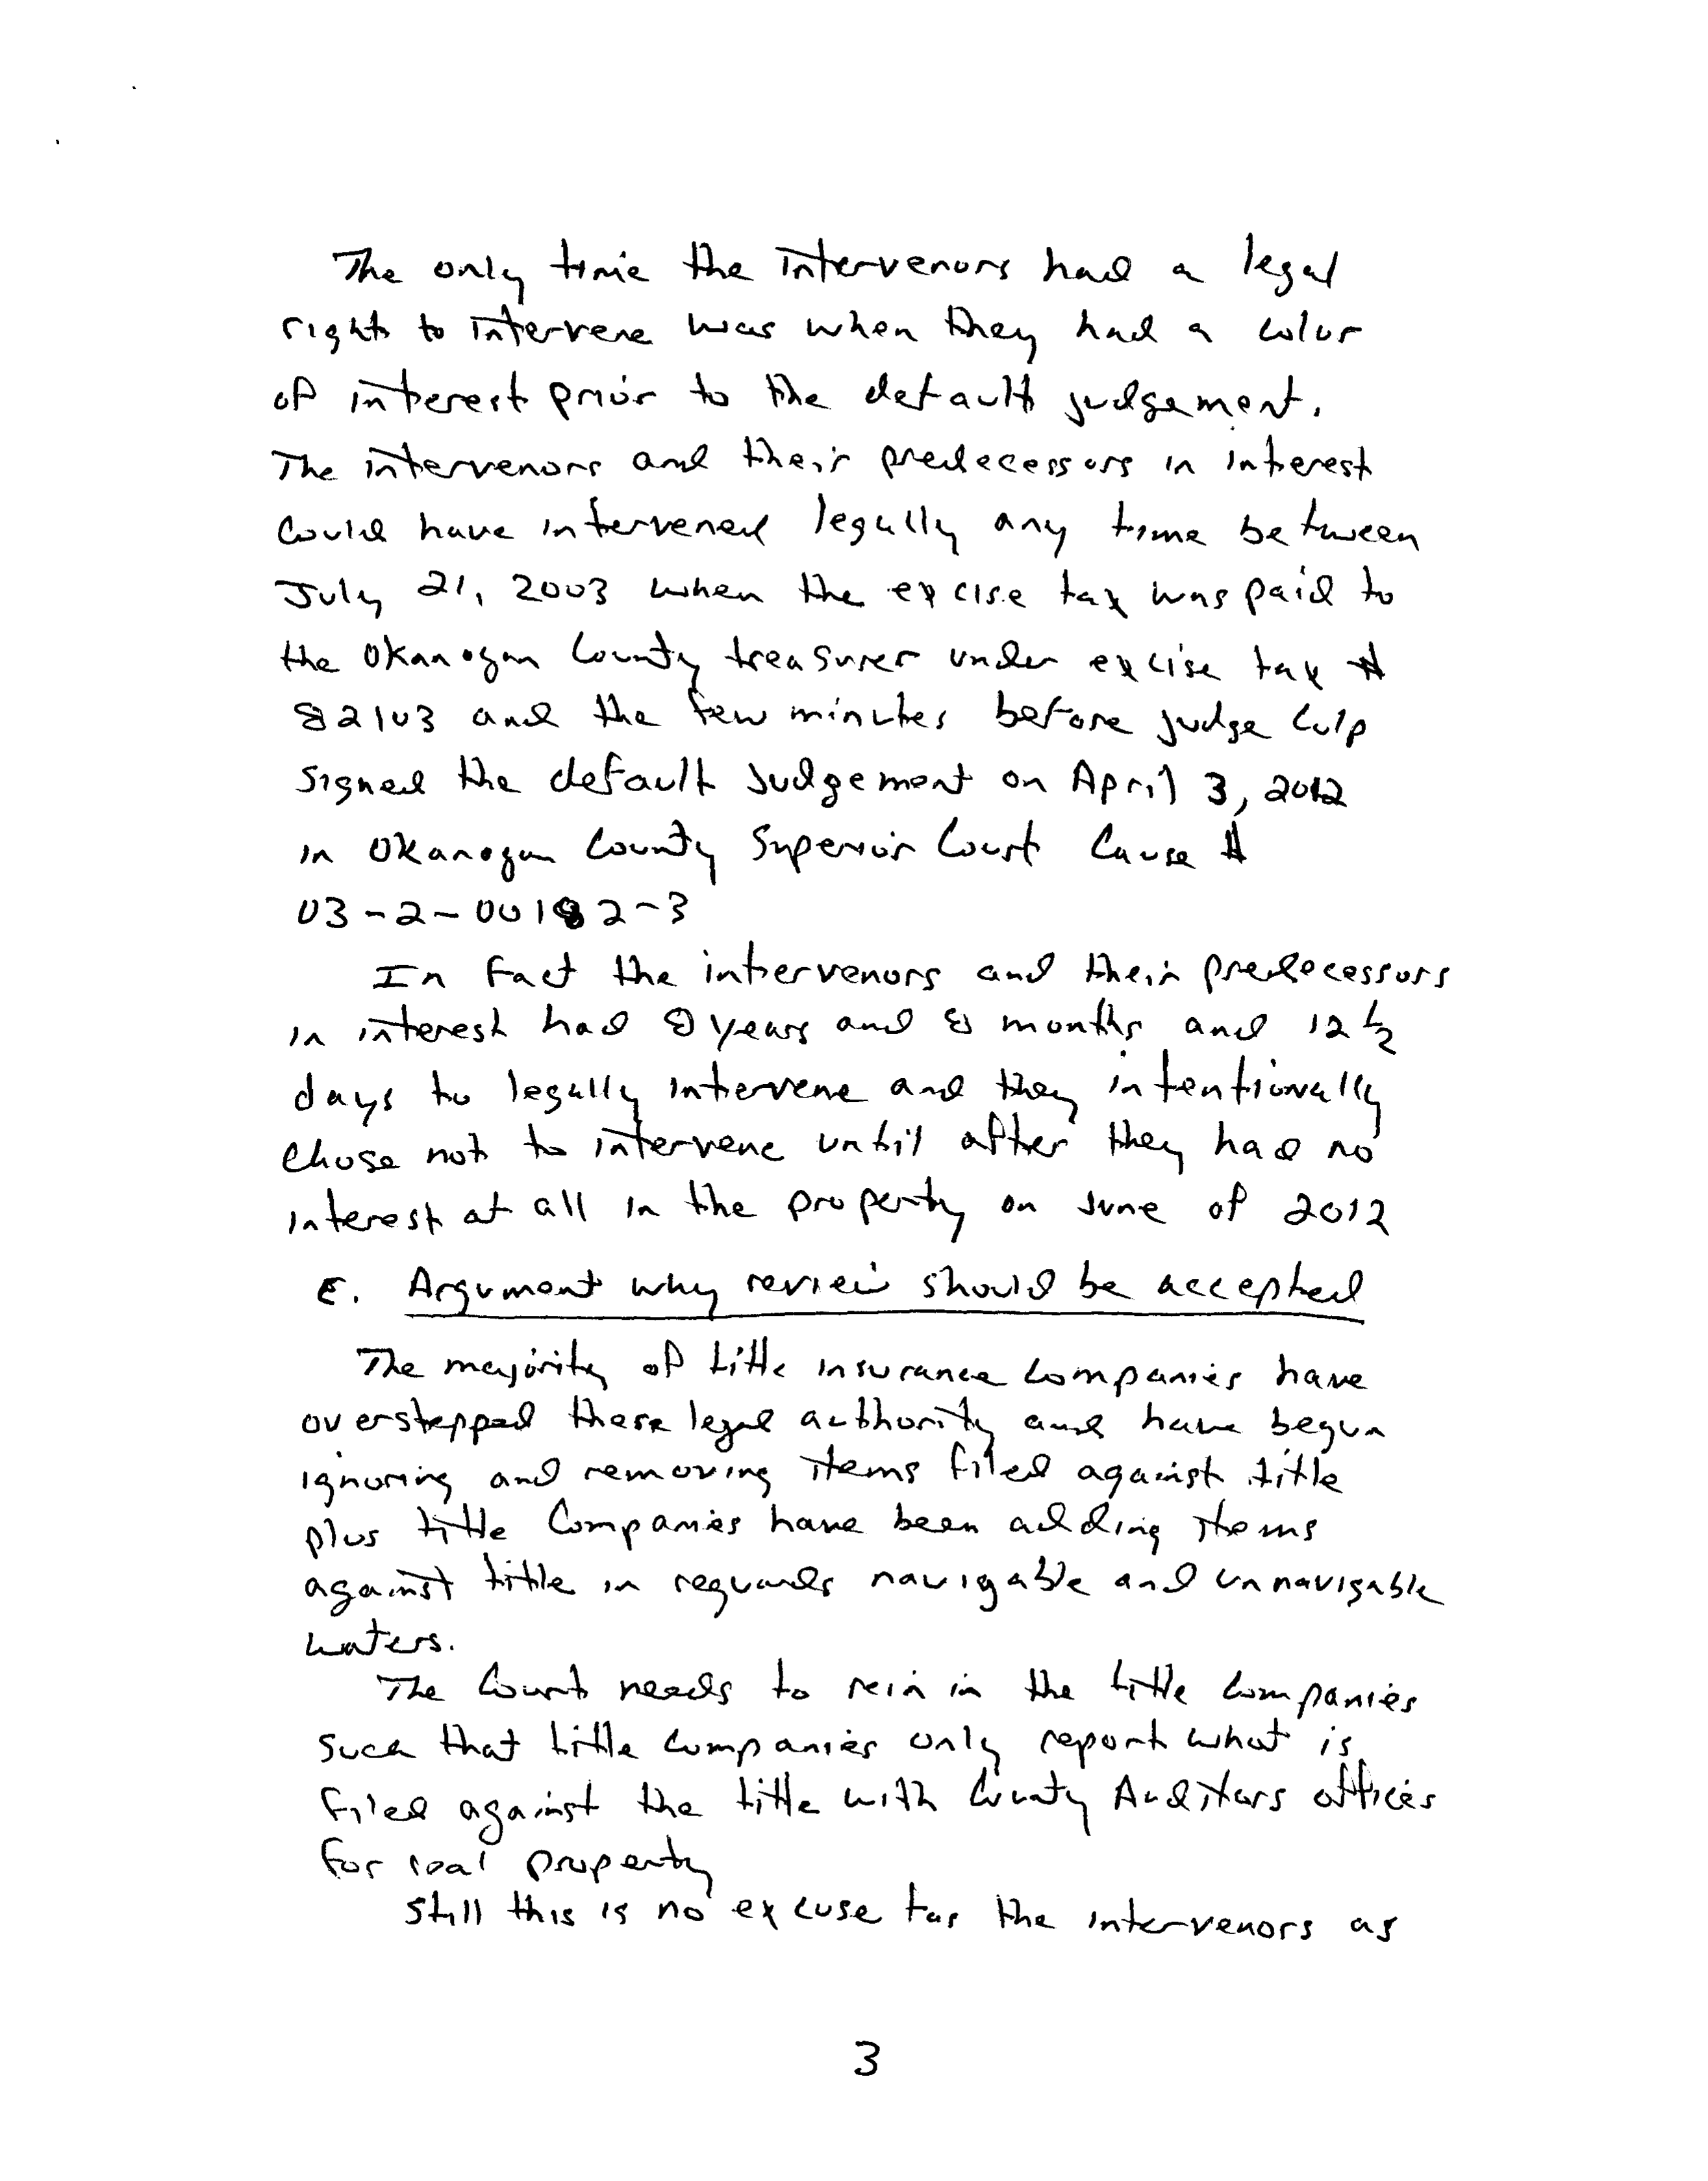 The only time the intervenors had a legal
right to intervene was when they had a color
of interest prior to the default judgement.
The intervenors and their predecessors in interest
Could have intervened legally any time between
July 21, 2003 when the excise tax was paid to
the Okanogan County treasurer under excise tax #
82103 and the few minutes before judge Culp
signed the default Judgement on April 3, 2012
in Okanogan County Superior Court Cause #
03-2-00182-3
In fact the intervenors and their predecessors
in interest had 8 years and 8 months and 12 1/2
days to legally intervene and they intentionally
Chose not to intervene until after they had no
interest at all in the property on June of 2012
E. Argument why review should be accepted
The majority of title insurance Companies have
overstepped these legal authority and have begun
ignoring and removing items filed against title
plus title Companies have been adding items
against title in reguards navigable and unnavigable
waters.
The Court needs to rein in the title Companies
such that title companies only report what is
filed against the title with County Auditors offices
for real property
Still this is no excuse for the intervenors as
3